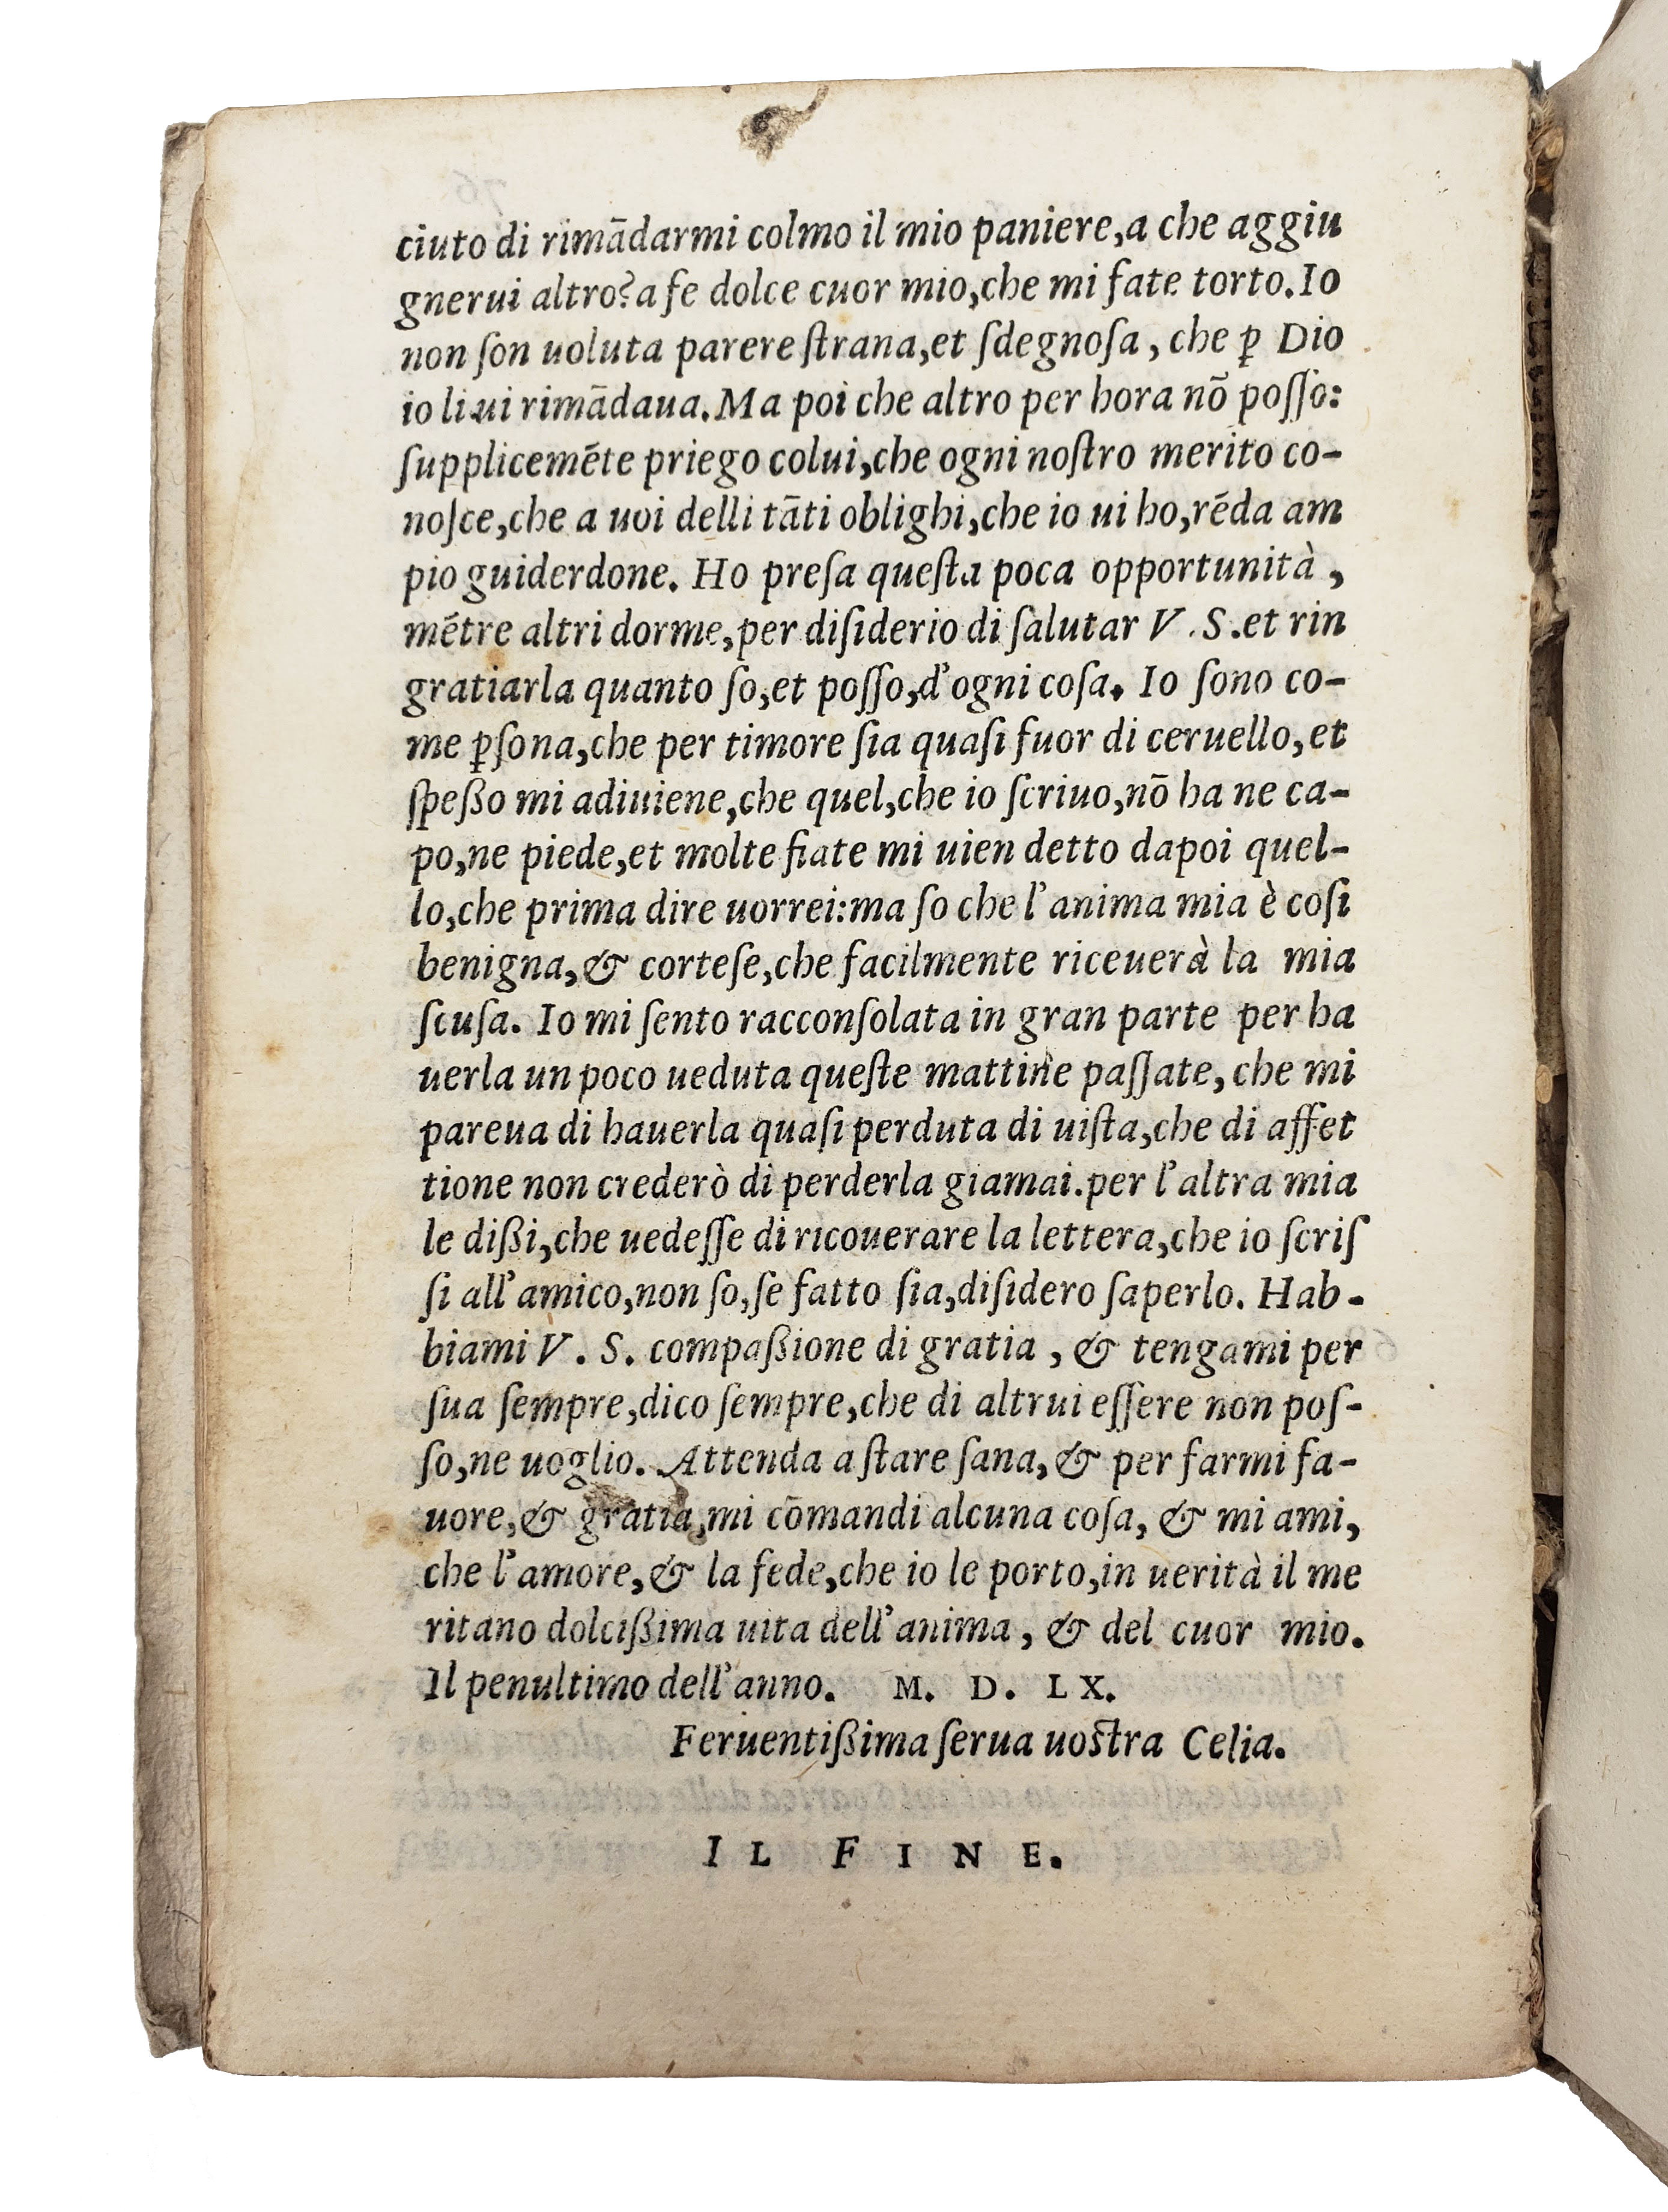 ciuto di rimādarmi colmo il mio paniere,a che aggiu
gnerui altro? a fe dolce cuor mio,che mi fate torto.Io
non ſon uoluta parere ſtrana,et ſdegnoſa, che ꝑ Dio
io li ui rimādaua.Ma poi che altro per hora nō poſſo:
ſupplicemēte priego colui,che ogni noſtro merito co-
noſce,che a uoi delli tāti oblighi,che io ui ho,rēda am
pio guiderdone. Ho preſa queſta poca opportunità,
mētre altri dorme,per diſiderio di ſalutar V.S.et rin
gratiarla quanto ſo,et poſſo,d'ogni coſa. Io ſono co-
me ꝑſona,che per timore ſia quaſi fuor di ceruello,et
ſpeßo mi adiuiene,che quel,che io ſcriuo,nō ha ne ca-
po,ne piede,et molte fiate mi uien detto dapoi quel-
lo,che prima dire uorrei:ma ſo che l'anima mia è coſi
benigna,& corteſe,che facilmente riceuerà la mia
ſcuſa. Io mi ſento racconſolata in gran parte per ha
uerla un poco ueduta queſte mattine paſſate, che mi
pareua di hauerla quaſi perduta di uiſta,che di affet
tione non crederò di perderla giamai.per l'altra mia
le dißi,che uedeſſe di ricouerare la lettera,che io ſcriſ
ſi all'amico,non ſo,ſe fatto ſia,diſidero ſaperlo. Hab-
biami V. S. compaßione di gratia, & tengami per
ſua ſempre,dico ſempre,che di altrui eſſere non poſ-
ſo,ne uoglio. Attenda a ſtare ſana,& per farmi fa-
uore,& gratia,mi cōmandi alcuna coſa, & mi ami,
che l'amore,& la fede,che io le porto,in uerità il me
ritano dolcißima uita dell'anima, & del cuor mio.
Il penultimo dell'anno. M. D. LX.
Feruentißima ſerua uoſtra Celia.
IL FINE.